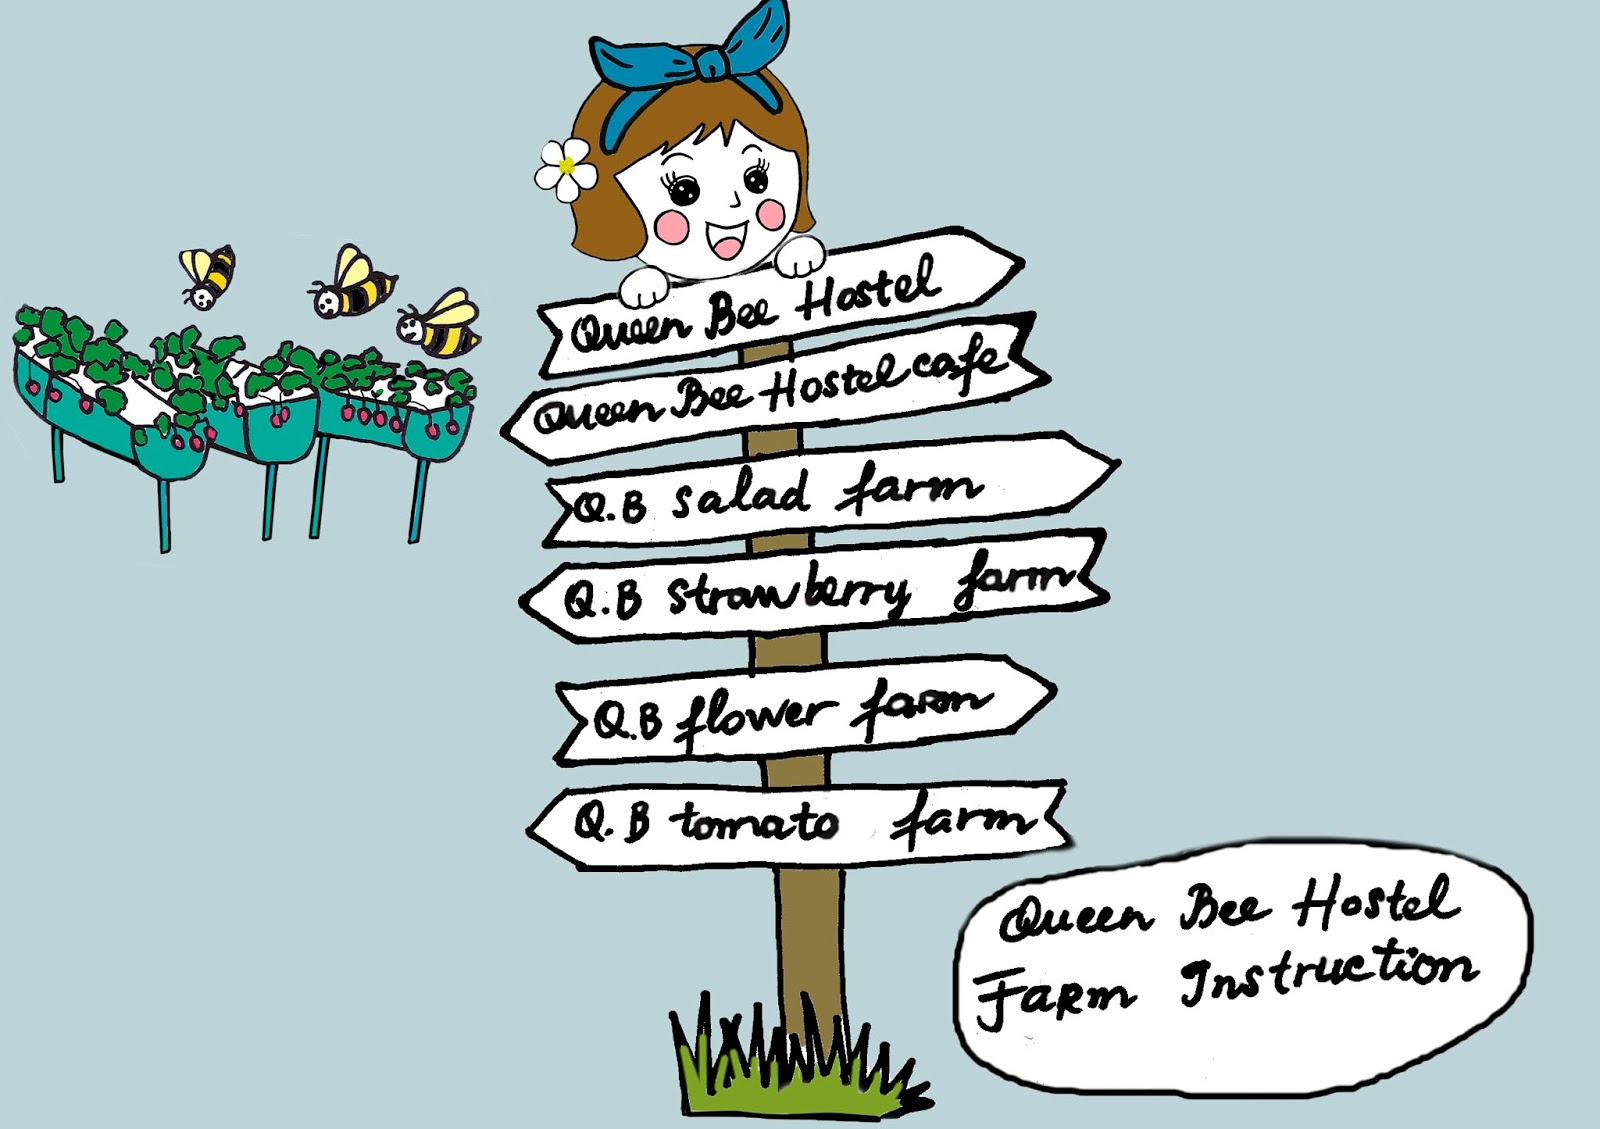 Queen Bee Hostel
Queen Bee Hostel cafe
Q.B salad farm
Q.B strawberry farm
Q.B flower farm
Q.B tomato farm
Queen Bee Hostel
Farm Instruction